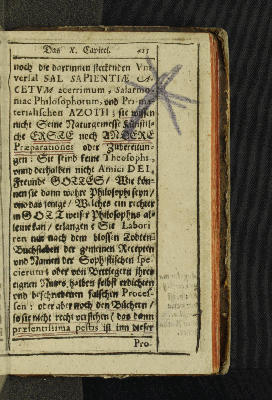 Das X. Capitel. 415
noch die darinnen steckenden Uni-
versal SAL SAPIENTIÆ CA-
CETUM acerrimum, Salarmo-
niac Philosophorum, und Pri-ma-
terialischen AZOTH; sie wissen
nicht Seine Naturgemesse Künstli-
che ERSTE noch ANDERE
Præparationes oder Zubereitun-
gen: Sie seind keine Theosophi,
und derhalben nicht Amici DEI,
Freunde GOTTES/ Wie kön-
nen sie dann wahre Philosophi seyn/
und das jenige/ Welches ein rechter
in GOTT weiser Philosophus al-
leine kan/ erlangen? Sie Labori-
ren nur nach dem blossen Todten-
Buchstaben der gemeinen Recepten
und Namen der Sophistischen spe-
cierum; oder von Betriegern ihres
eignen Nutzes halben selbst erdichten
und beschriebenen falschen Proces-
sen; oder aber nach den Büchern/
so sie nicht recht verstehen/ das dann
præsentissima pestis ist inn dieser
Pro-